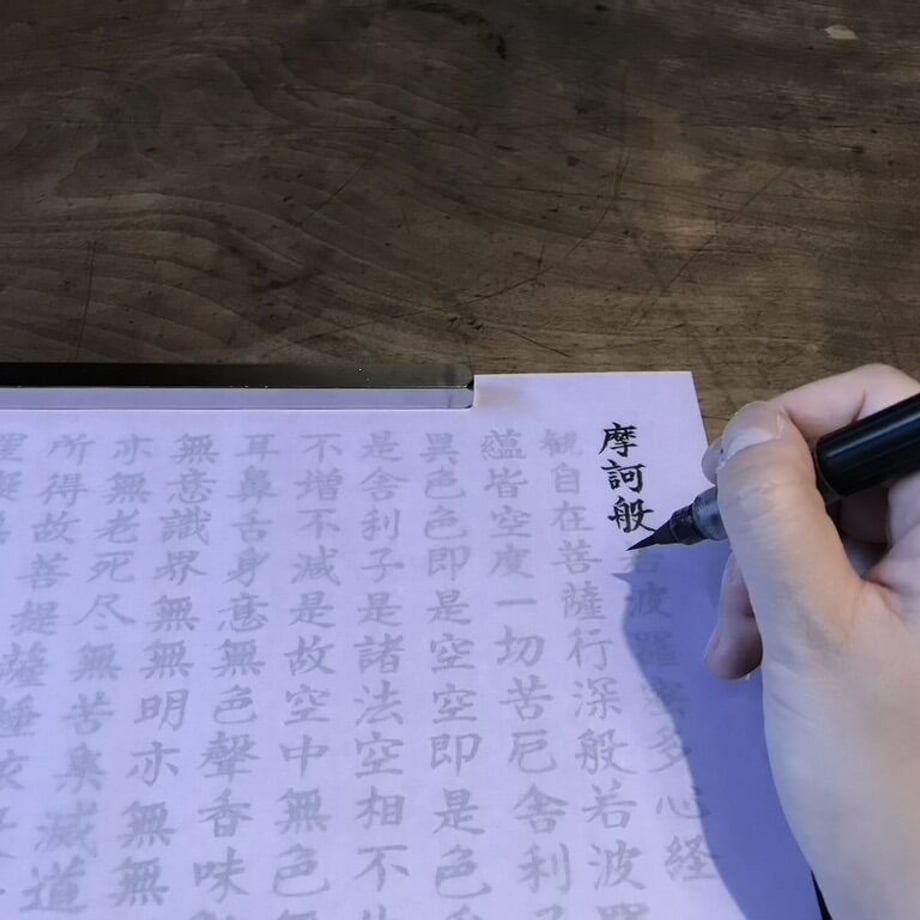 摩訶般若波羅蜜多心経
観自在菩薩行深般若波羅
蘊皆空度一切苦厄舎利子
異色色即是空空即是色
是舎利子是諸法空相不生
不増不減是故空中無色
耳鼻舌身意無色聲香味
無意識界無無明亦無無
亦無老死尽無苦集滅道
所得故菩提薩埵